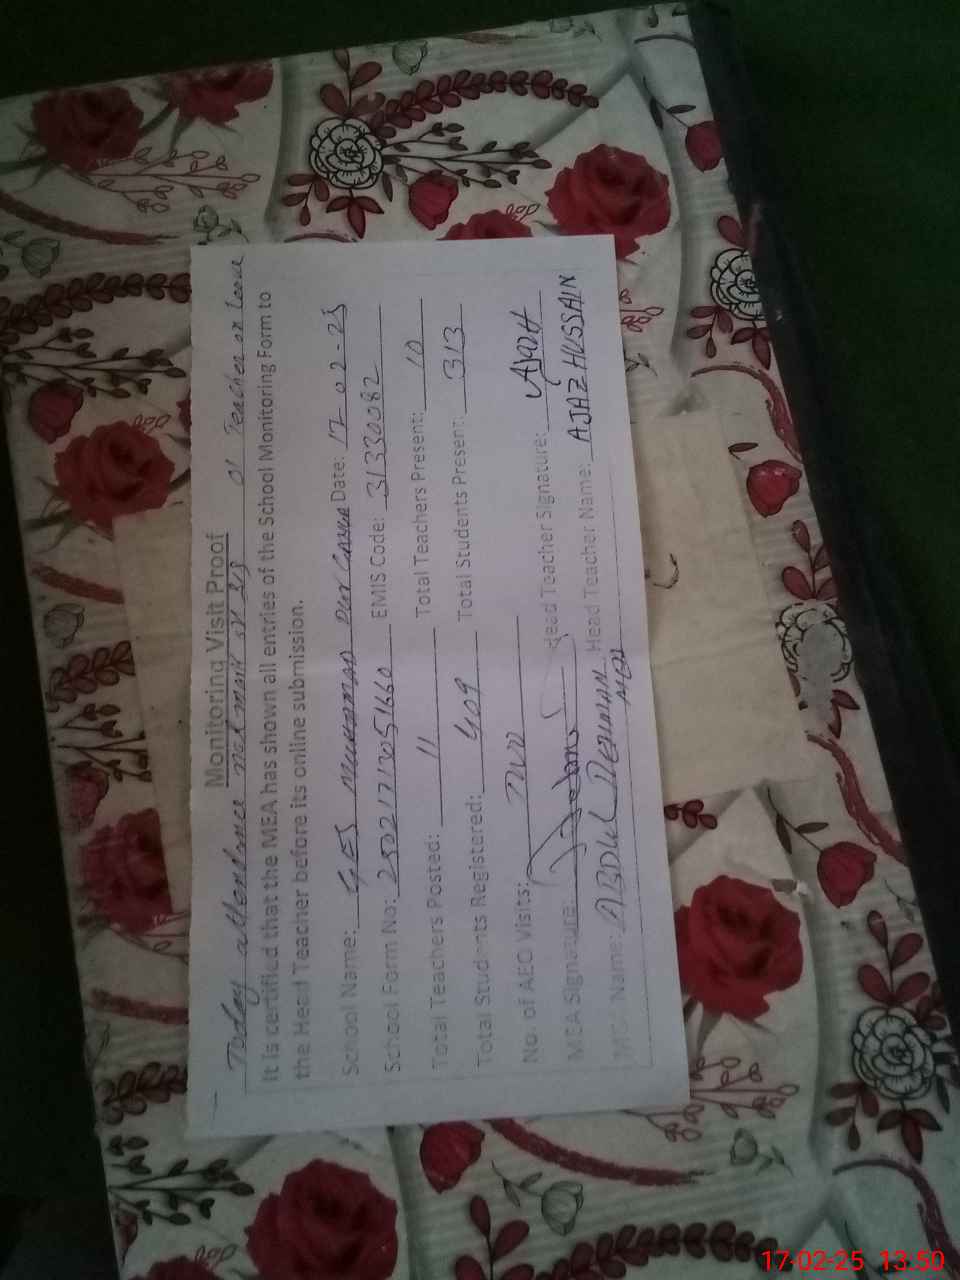 Monitoring Visit Proof
Today attendnce not mark 313 01 Teacher on Leave
It is certified that the MEA has shown all entries of the School Monitoring Form to
the Head Teacher before its online submission.
School Name: GES MUHAMMAD Date: 17-02-25
School Form No: EMIS Code: 31330082
Total Teachers Posted: 11 Total Teachers Present: 10
Total Students Registered: 409 Total Students Present: 313
No. of AEO Visits: TWO
MEA Signature: Head Teacher Signature:
MEA Name: ABDUL REHMAN Head Teacher Name: AJAZ HUSSAIN
MEA
17-02-25 13:50